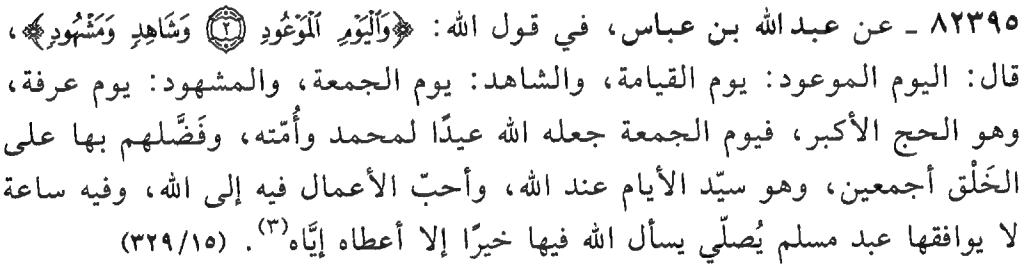 ٨٢٣٩٥ ـ عن عبد الله بن عباس، في قول الله: ﴿وَٱلْيَوْمِ ٱلْمَوْعُودِ ۝٢ وَشَاهِدٍ وَمَشْهُودٍ﴾،
قال: اليوم الموعود: يوم القيامة، والشاهد: يوم الجمعة، والمشهود: يوم عرفة،
وهو الحج الأكبر، فيوم الجمعة جعله الله عيدًا لمحمد وأُمّته، وفَضَّلهم بها على
الخَلْق أجمعين، وهو سيّد الأيام عند الله، وأحبّ الأعمال فيه إلى الله، وفيه ساعة
لا يوافقها عبد مسلم يُصلّي يسأل الله فيها خيرًا إلا أعطاه إيَّاه(٣). (٣٢٩/١٥)